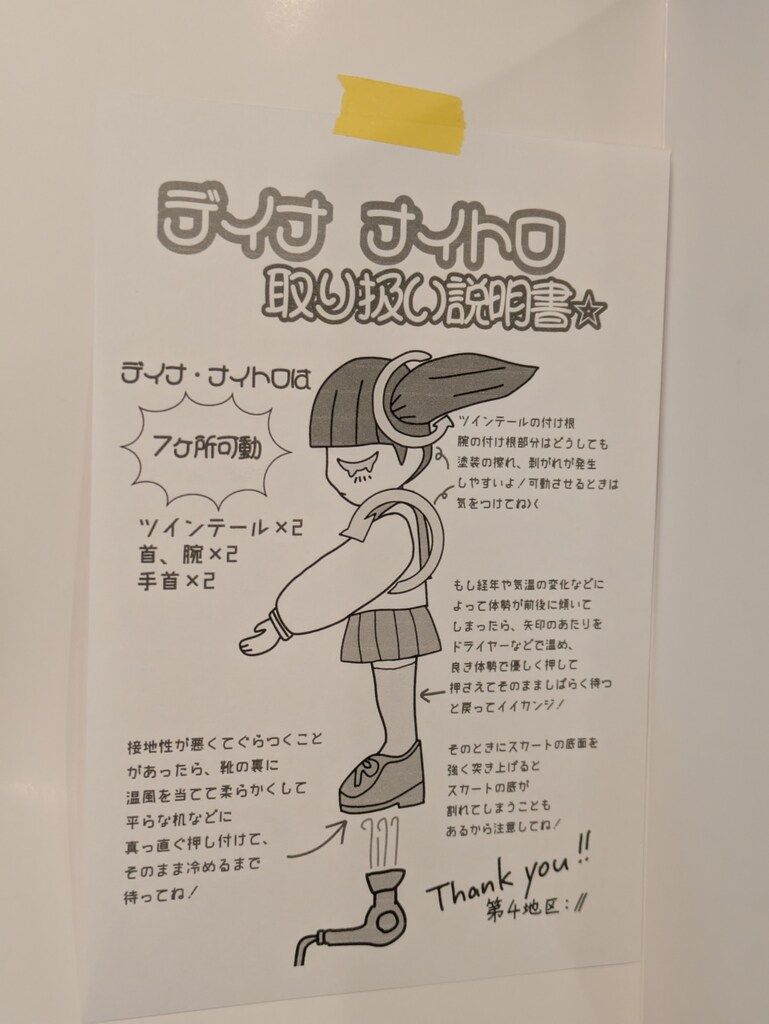 デイナ ナイトロ
取り扱い説明書☆
デイナ・ナイトロは
7ケ所可動
ツインテール×2
首、腕×2
手首×2
ツインテールの付け根
腕の付け根部分はどうしても
塗装の擦れ、剥がれが発生
しやすいよ!可動させるときは
気をつけてね):
もし経年や気温の変化などに
よって体勢が前後に傾いて
しまったら、矢印のあたりを
ドライヤーなどで温め、
良き体勢で優しく押して
押さえてそのまましばらく待つ
と戻ってイイカンジ!
接地性が悪くてぐらつくこと
があったら、靴の裏に
温風を当てて柔らかくして
平らな机などに
真っ直ぐ押し付けて、
そのまま冷めるまで
待ってね!
そのときにスカートの底面を
強く突き上げると
スカートの底が
割れてしまうことも
あるから注意してね!
Thank you!!
第4地区://